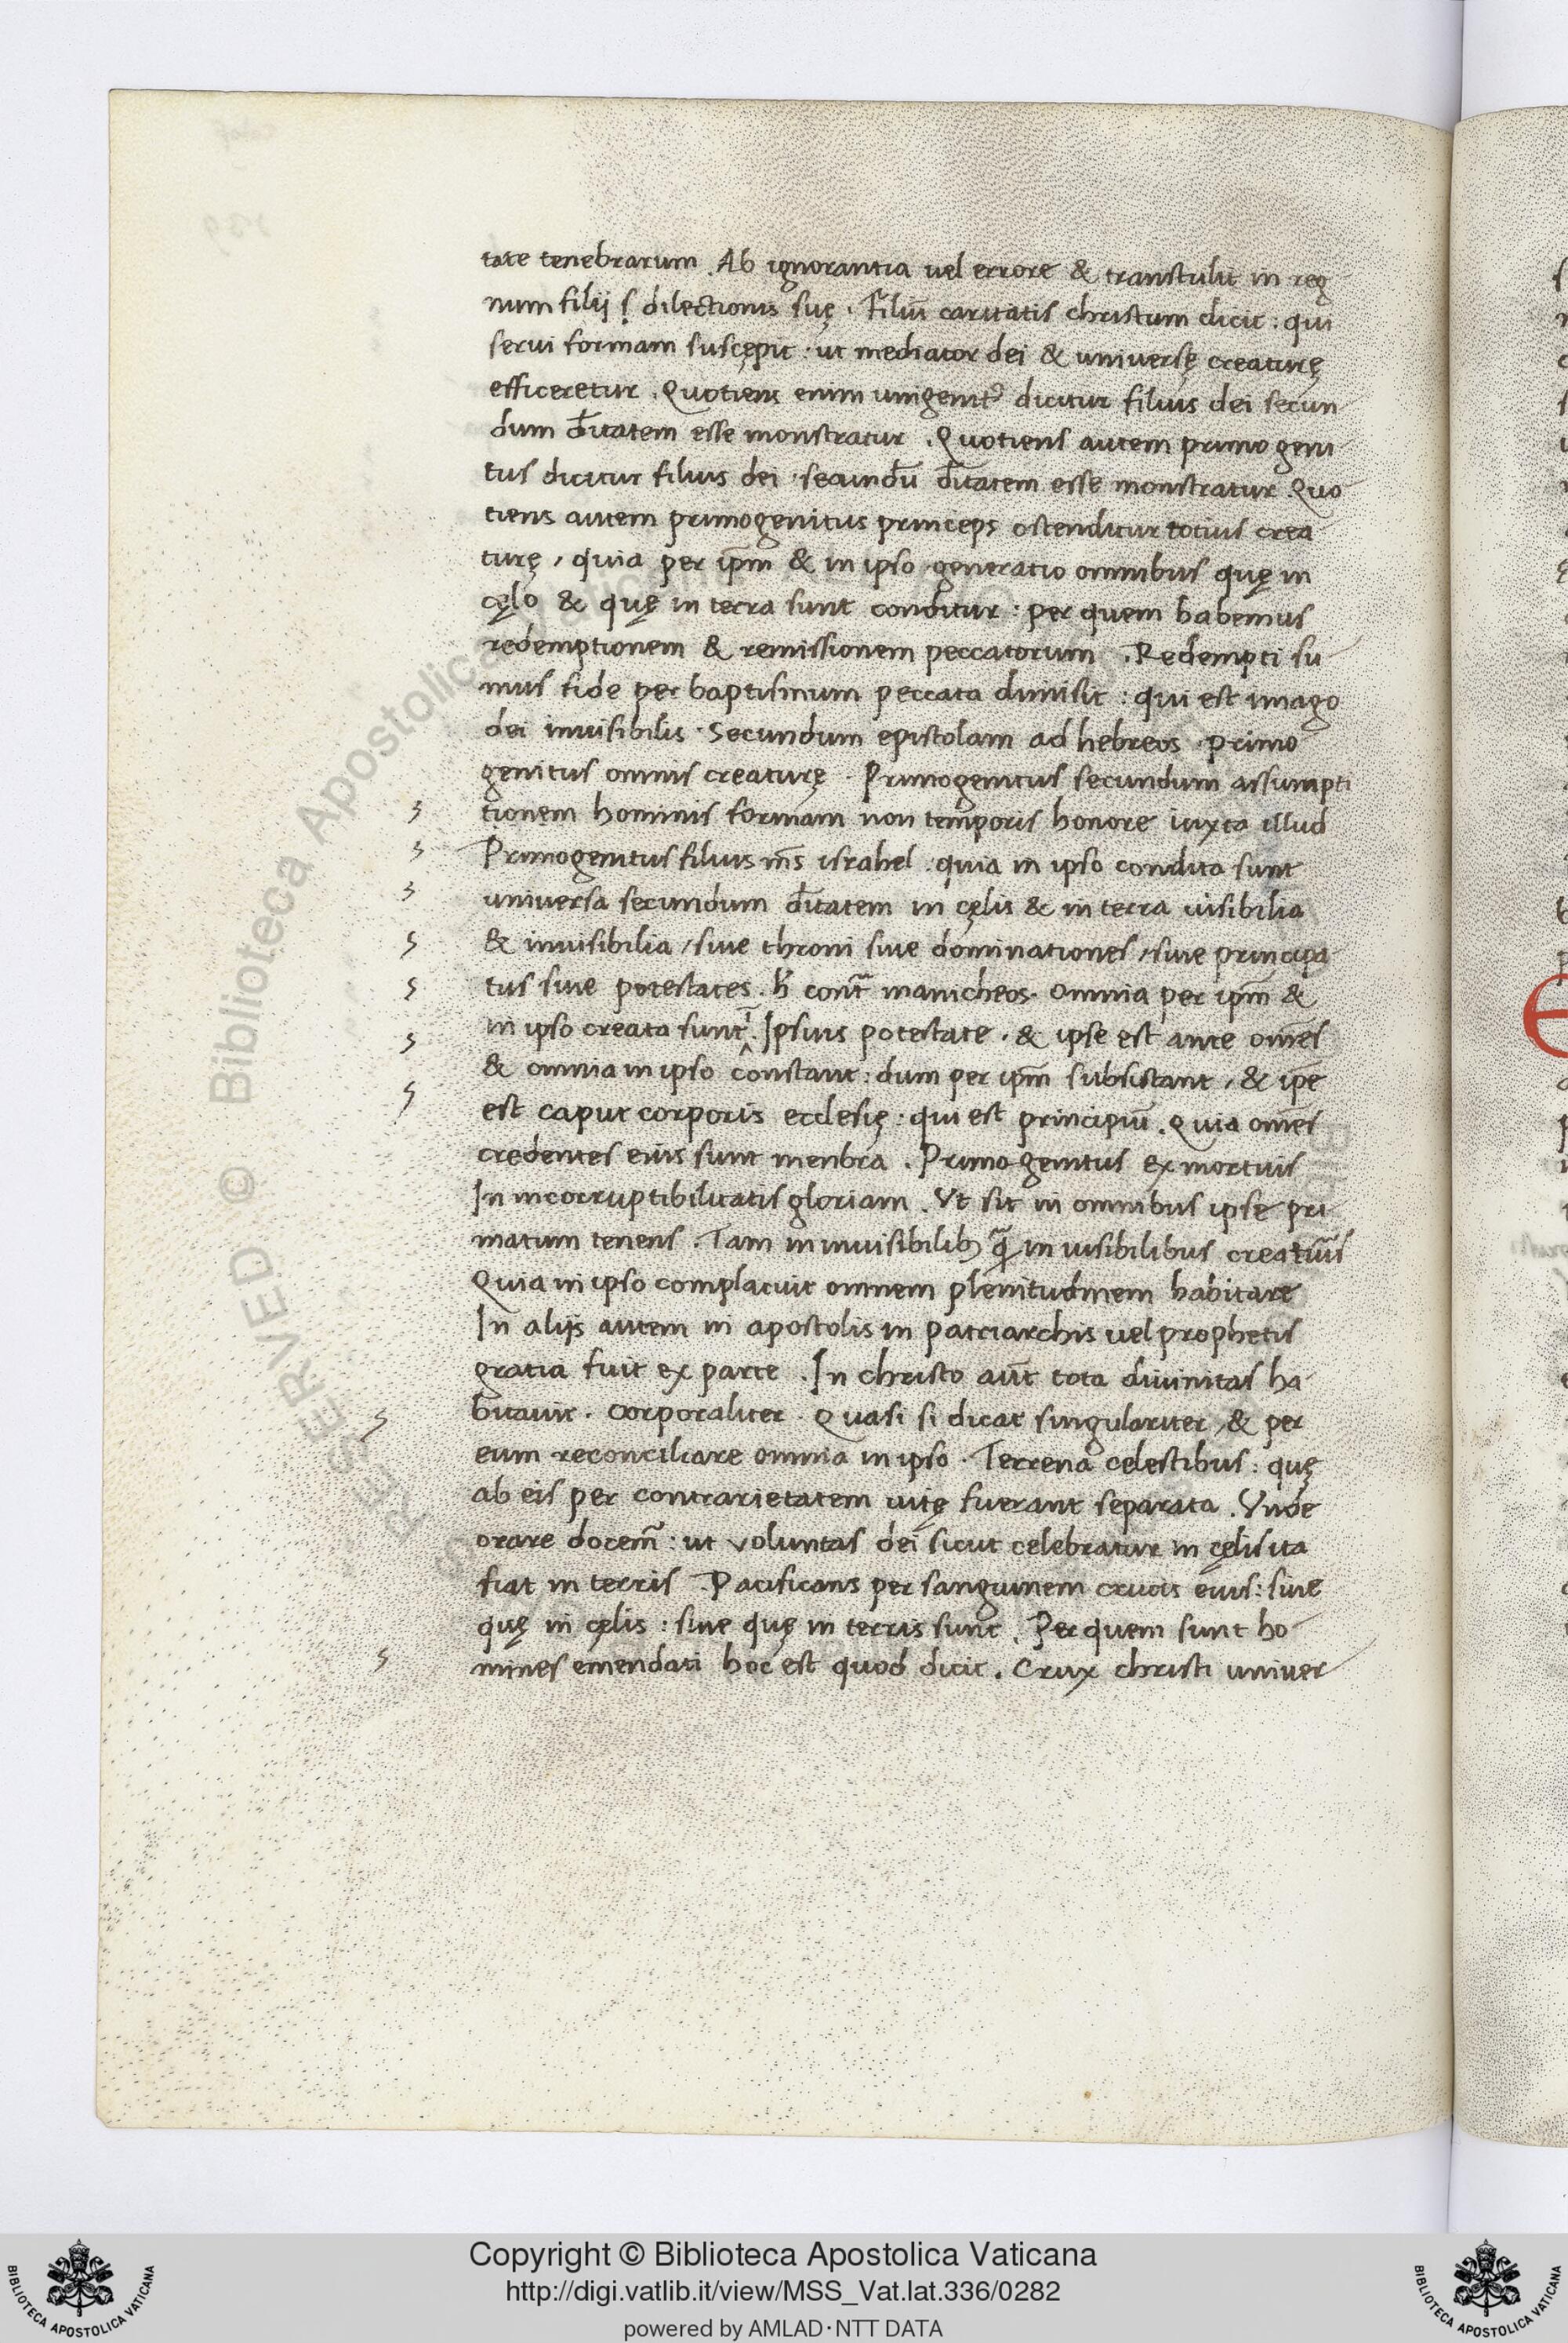 tate tenebrarum. Ab ignorantia uel errore & transtulit in reg
num filij dilectionis suę. Filiū caritatis christum dicit: qui
serui formam suscępit. ut mediator dei & universę creaturę
efficeretur. Quotiens enim unigenitꝰ dicitur filius dei secun
dum d̄itatem esse monstratur. Quotiens autem primo geni
tus dicitur filius dei. secundū d̄itatem esse monstratur. Quo
tiens autem primogenitus princeps ostenditur totius crea
turę, quia per ip̄m & in ipso generatio omnibus quę in
cęlo & quę in terra sunt conditur: per quem habemus
redemptionem & remissionem peccatorum. Redempti su
mus fide per baptismum peccata dimisit: qui est imago
dei inuisibilis. Secundum epistolam ad hebreos. primo
genitus omnis creaturę. Primogenitus secundum assumpti
tionem hominis formam non temporis honore iuxta illud
Primogenitus filius m̄s israhel. quia in ipso condita sunt
universa secundum d̄itatem in cęlis & in terra uisibilia
& inuisibilia, siue throni siue dominationes, siue principa
tus siue potestates. contª manicheos. omnia per ip̄m &
in ipso creata sunt. Ipsius potestate. & ipse est ante om̄es
& omnia in ipso constant: dum per ip̄m subsistant, & ip̄e
est caput corporis ecclesię. qui est principiū. Quia om̄es
credentes eius sunt menbra. Primogenitus ex mortuis
In incorruptibilitatis gloriam. Vt sit in omnibus ipse pri
matum tenens. Tam in inuisibilibꝫ q̄ in uisibilibus
Quia in ipso complacuit omnem plenitudinem habitare
In alijs autem in apostolis in patriarchis uel prophetis
gratia fuit ex parte. In christo aūt tota diuinitas ha
bitauit. corporaliter. Quasi si dicat singulariter, & per
eum reconciliare omnia in ipso. Terrena celestibus: quę
ab eis per contrarietatem uitę fuerant separata. Vnde
orare docem̃: ut voluntas dei sicut celebratur in cęlis ita
fiat in terris. Pacificans per sanguinem crucis eius: siue
quę in cęlis: siue quę in terris sunt. Per quem sunt ho
mines emendati hoc est quod dicit. Crux christi univer
Copyright © Biblioteca Apostolica Vaticana
http://digi.vatlib.it/view/MSS_Vat.lat.336/0282
powered by AMLAD·NTT DATA